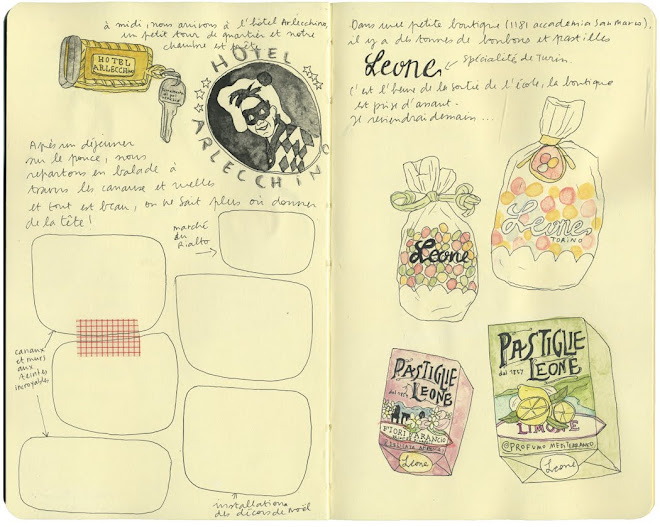 à midi, nous arrivons à l'hôtel Arlecchino,
un petit tour de quartier et notre
chambre est prête
HOTEL
ARLECCHINO
HOTEL
ARLECCHINO
Après un déjeuner
sur le pouce, nous
repartons en balade à
travers les canaux et ruelles
et tout est beau, on ne sait plus où donner
de la tête!
marché
du
Rialto
canaux
et murs
aux
teintes
incroyables
installations
des décors de Noël
Dans une petite boutique (1181 accademia San Marco),
il y a des tonnes de bonbons et pastilles
Leone, spécialité de Turin.
C'est l'heure de la sortie de l'école, la boutique
est prise d'assaut.
Je reviendrai demain...
Leone
Leone
TORINO
PASTIGLIE
dal 1857
LEONE
FIORI ARANCIO
Leone
PASTIGLIE
dal 1857 LEONE
LIMONE
PROFUMO MEDITERRANEO
Leone